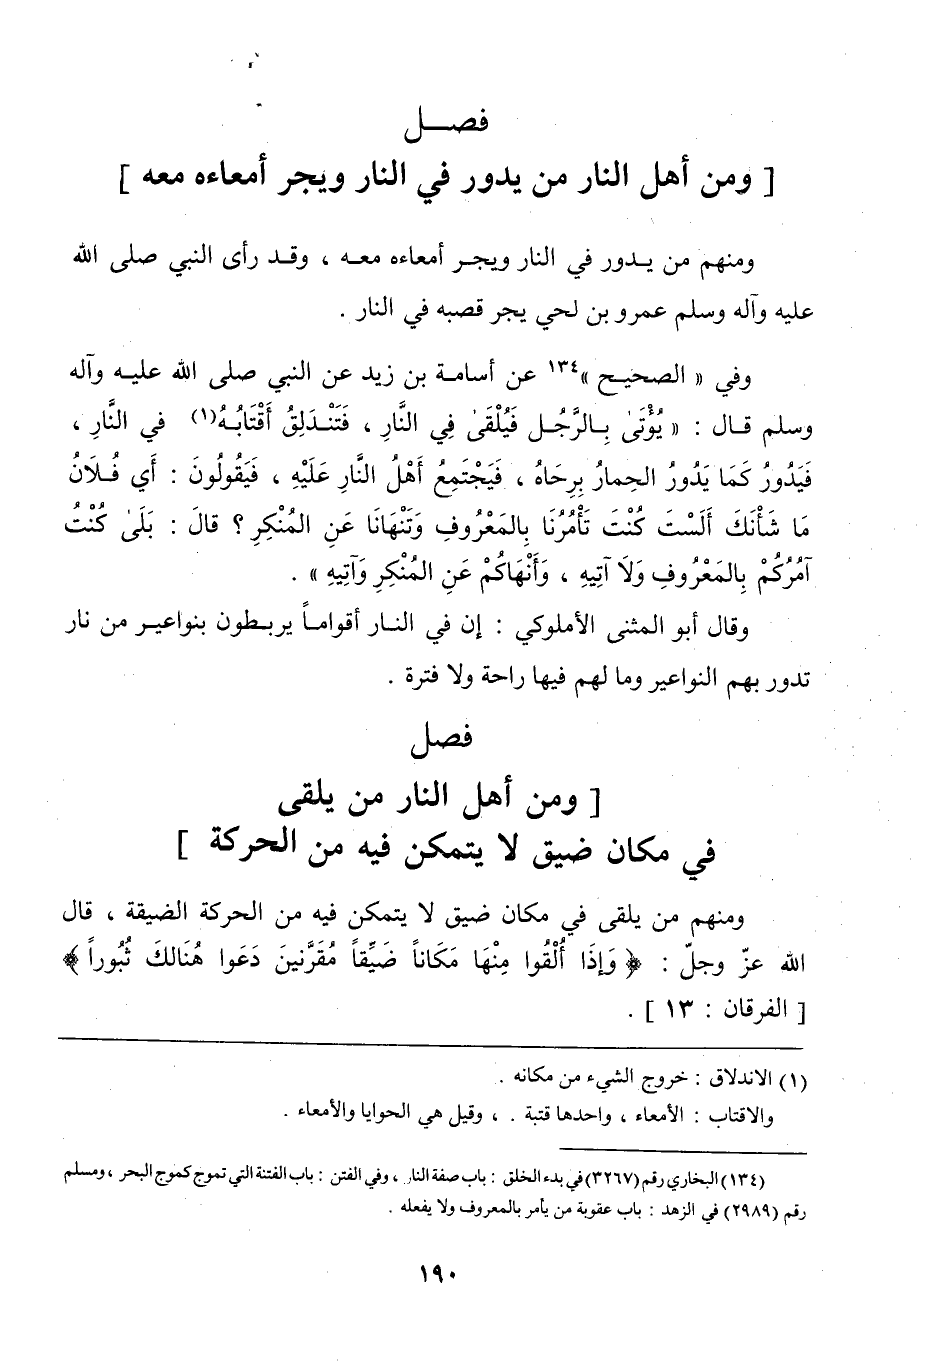 فصــل
[ ومن أهل النار من يدور في النار ويجر أمعاءه معه ]
ومنهم من يــدور في النار ويجــر أمعاءه معــه ، وقــد رأى النبي صلى الله
عليه وآله وسلم عمرو بن لحي يجر قصبه في النار .
وفي « الصحيــح »١٣٤ عن أسامــة بن زيد عن النبي صلى الله عليــه وآله
وسلم قــال : « يُؤْتَىٰ بِــالرَّجُــل فَيُلْقَىٰ فِي النَّارِ ، فَتَنْــدَلِقُ أَقْتَابُــهُ(١) في النَّارِ ،
فَيَدُورُ كَمَا يَدُورُ الحِمارُ بِرِحَاهُ ، فَيَجْتَمِعُ أَهْلُ النَّارِ عَلَيْهِ ، فَيَقُولُونَ : أَي فُــلَانُ
مَا شَأْنَكَ أَلَسْتَ كُنْتَ تَأْمُرُنَا بِالمَعْرُوفِ وَتَنْهَانَا عَنِ المُنْكِرِ ؟ قالَ : بَلَىٰ كُنْتُ
آمُرُكُمْ بِالمَعْرُوفِ وَلَا آتِيهِ ، وَأَنْهَاكُمْ عَنِ المُنْكِرِ وَآتِيهِ » .
وقال أبو المثنى الأملوكي : إن في النــار أقوامــاً يربــطون بنواعيــر من نار
تدور بهم النواعير وما لهم فيها راحة ولا فترة .
فصل
[ ومن أهل النار من يلقى
في مكان ضيق لا يتمكن فيه من الحركة ]
ومنهم من يلقى في مكان ضيق لا يتمكن فيه من الحركة الضيقة ، قال
الله عزّ وجلّ : ﴿ وَإِذَا أُلْقُوا مِنْهَا مَكَاناً ضَيِّقاً مُقَرَّنينَ دَعَوا هُنَالكَ ثُبُوراً ﴾
[ الفرقان : ١٣ ] .
(١) الاندلاق : خروج الشيء من مكانه .
والاقتاب : الأمعاء ، واحدها قتبة . ، وقيل هي الحوايا والأمعاء .
(١٣٤) البخاري رقم (٣٢٦٧) في بدء الخلق : باب صفة النار ، وفي الفتن : باب الفتنة التي تموج كموج البحر ، ومسلم
رقم (٢٩٨٩) في الزهد : باب عقوبة من يأمر بالمعروف ولا يفعله .
١٩٠